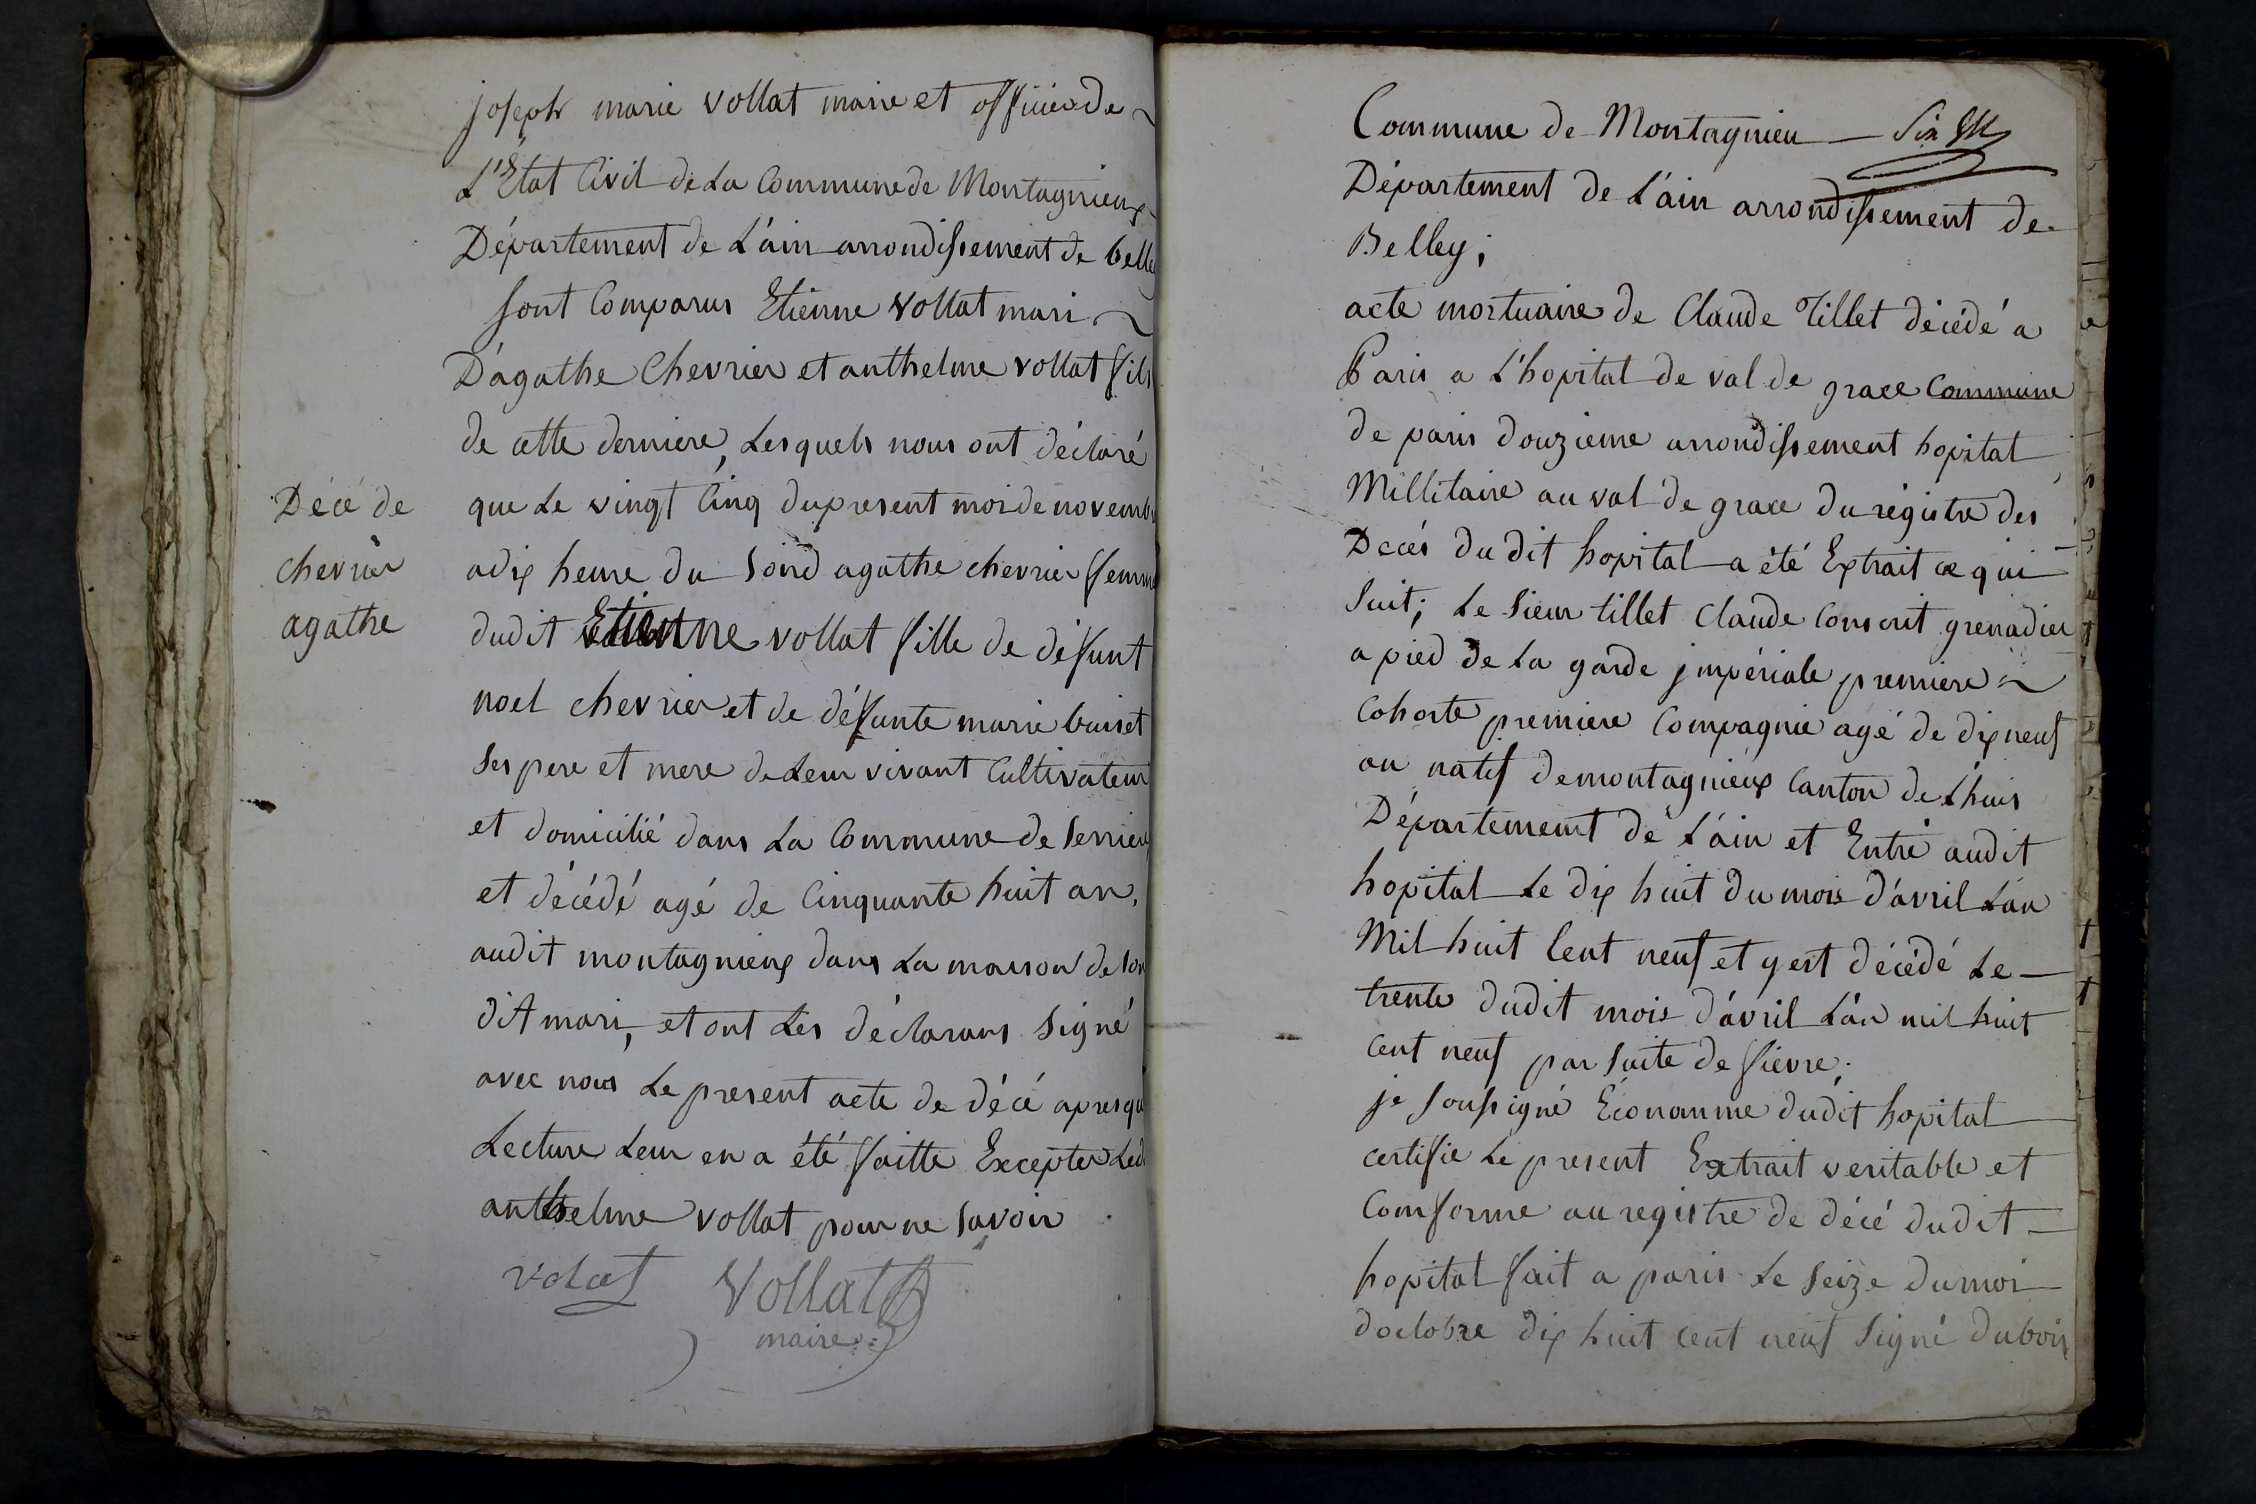 joseph marie vollat maire et officier de
L'Etat Civil de La Commune de Montagnieux
Département de L'ain arrondissement de belle
sont Comparus Etienne vollat mari
D'agathe Chevrier et anthelme vollat fils
de cette derniere, Lesquels nous ont déclaré
que Le vingt Cinq du present moi de novemb
a dix heure du Soird agathe chevrier femm
dudit Etienne vollat fille de défunt
noel chevrier et de défunte marie buiset
Ses pere et mere de Leur vivant Cultivateur
et domicilié dans La Commune de Serrieu
et décédé agé de Cinquante huit an,
audit montagnieux dans La maison de son
dit mari, et ont Les déclarans Signé
avec nous Le present acte de décé apres qu
Lecture Leur en a été faitte Excepter Led
anthelme vollat pour ne Savoir
volat Vollat
maire
Décé de
chevrier
agathe
Commune de Montagnieu — Six
Département de L'ain arrondissement de
Belley;
acte mortuaire de Claude Tillet décédé a
Paris a L'hopital de val de grace Commune
de paris douzieme arrondissement hopital
Millitaire au val de grace du régistre des
Decés du dit hopital a été Extrait ce qui
Suit; Le Sieur tillet Claude Conscrit grenadier
a pied de La garde jmpériale premiere
Cohorte premiere Compagnie agé de dix neuf
an natif de montagnieux Canton de L'huis
Département de L'ain et Entré audit
hopital Le dix huit du mois d'avril L'an
Mil huit Cent neuf et y est décédé Le
trente dudit mois d'avril L'an mil huit
Cent neuf par Suite de fievre.
je Soussigné Econanme dudit hopital
certifie Le present Extrait veritable et
Comforme au registre de décé dudit
hopital fait a paris Le Seize du moi
doctobre dix huit cent neuf Signé dubois